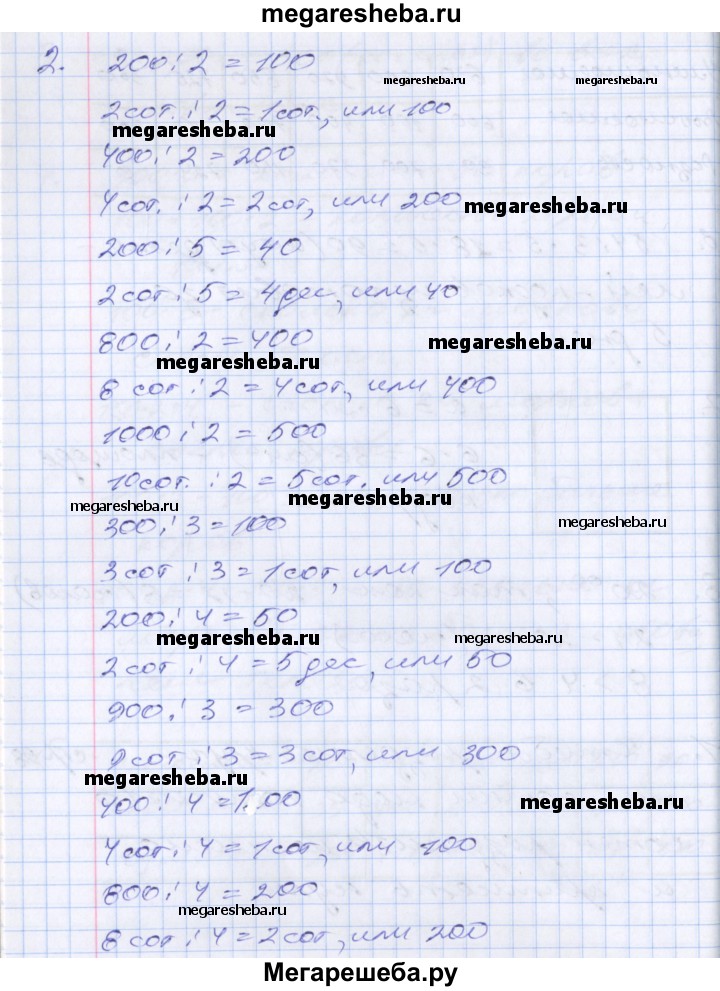 megaresheba.ru
2. 200 : 2 = 100
megaresheba.ru megaresheba.ru
2 сот. : 2 = 1 сот., или 100
megaresheba.ru
400 : 2 = 200
4 сот. : 2 = 2 сот, или 200
megaresheba.ru
200 : 5 = 40
2 сот : 5 = 4 дес, или 40
800 : 2 = 400
megaresheba.ru
megaresheba.ru
8 сот : 2 = 4 сот., или 400
1000 : 2 = 500
10 сот. : 2 = 5 сот. или 500
megaresheba.ru
megaresheba.ru
300 : 3 = 100
megaresheba.ru
3 сот : 3 = 1 сот, или 100
200 : 4 = 50
megaresheba.ru megaresheba.ru
2 сот : 4 = 5 дес, или 50
900 : 3 = 300
9 сот : 3 = 3 сот, или 300
megaresheba.ru
400 : 4 = 100
megaresheba.ru
4 сот : 4 = 1 сот, или 100
800 : 4 = 200
megaresheba.ru
8 сот : 4 = 2 сот, или 200
Мегарешеба.ру